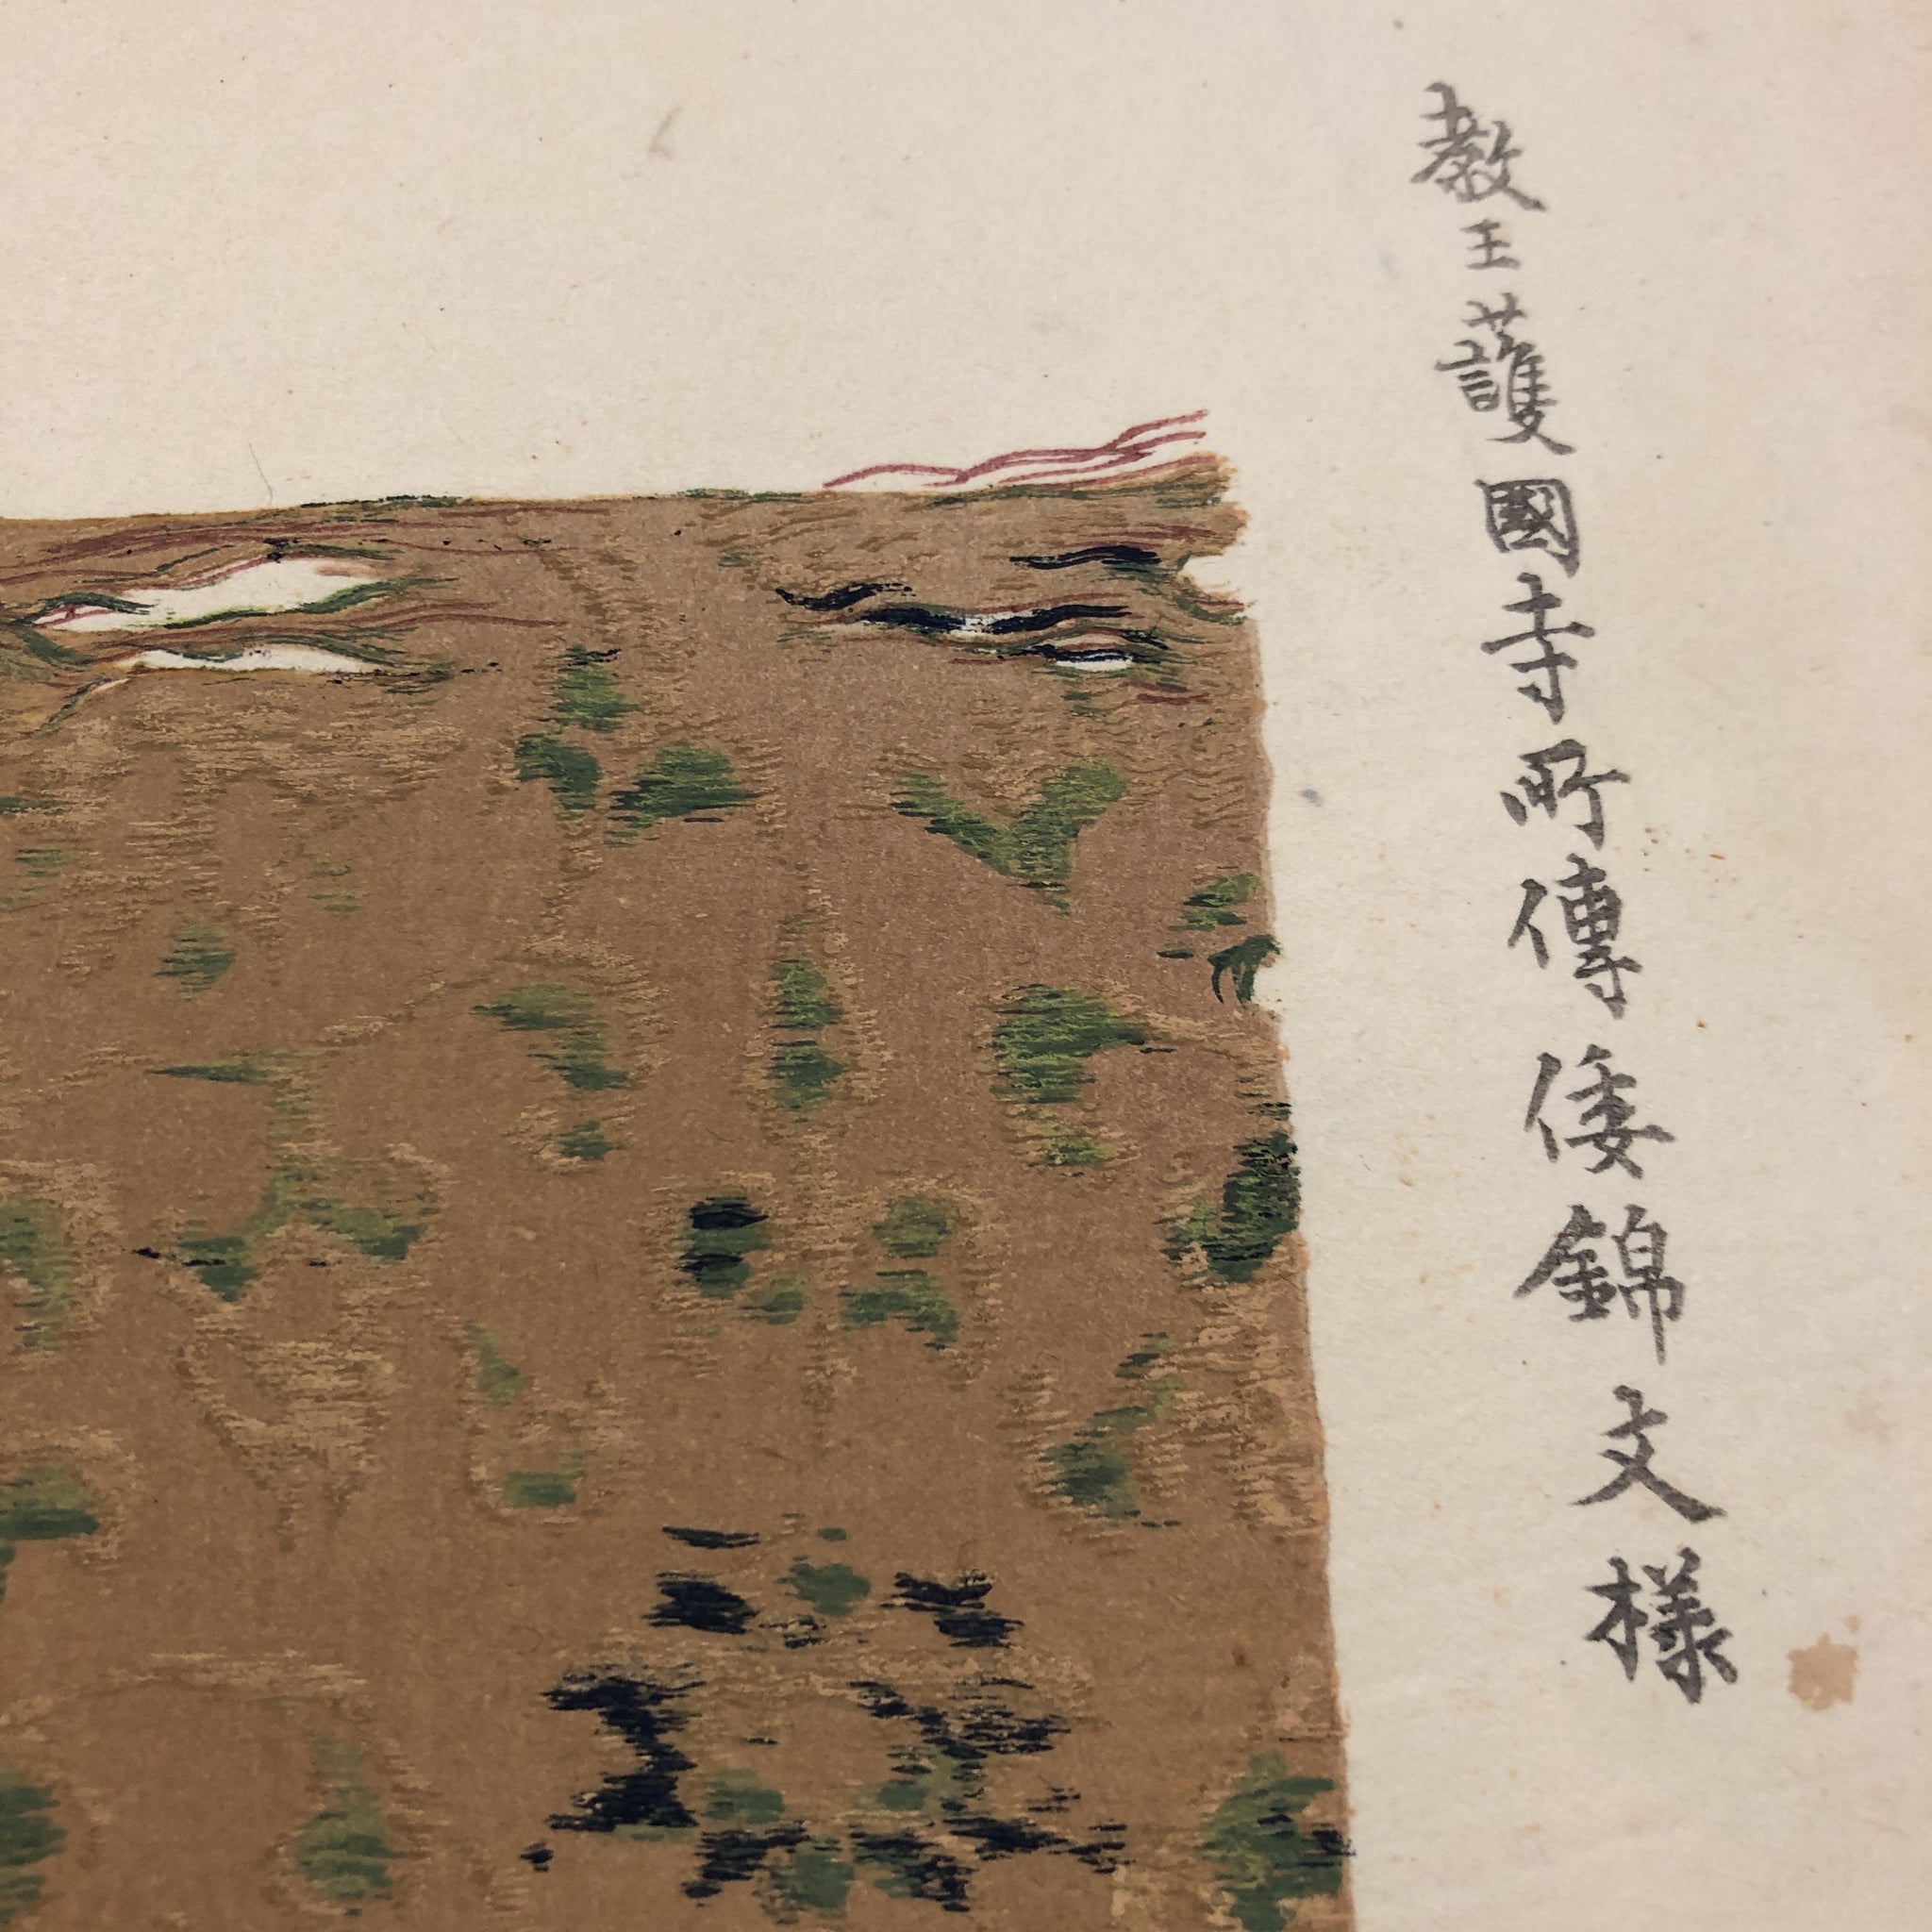 教王護國寺所傳倭錦文樣